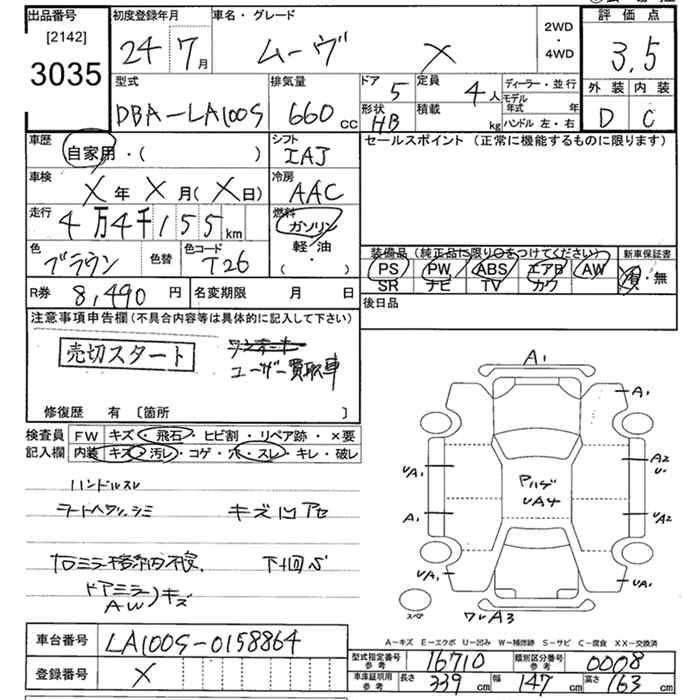 出品番号 初度登録年月 車名・グレード 2WD・4WD 評価点
[2142]
3035 24年 7月 ムーヴ X 3.5
型式 排気量 ドア 定員 ディーラー・並行 外装 内装
DBA-LA100S 660cc 5 4人 モデル年式 年 D C
形状 HB 積載 kg ハンドル 左・右
車歴 自家用・( ) シフト IAJ セールスポイント (正常に機能するものに限ります)
車検 X年 X月(X日) 冷房 AAC
走行 4万4千155km 燃料 ガソリン 軽・油 ・( )
色 ブラウン 色替 色コード T26
装備品 (純正品に限り○をつけてください) 新車保証書
PS PW ABS エアB AW 有・無
SR ナビ TV カワ
R券 8,490円 名変期限 月 日 後日品
注意事項申告欄(不具合内容等は具体的に記入して下さい)
売切スタート
ユーザー買取車
修復歴 有 〔箇所 〕
検査員 FW キズ・飛石・ヒビ割・リペア跡・×要
記入欄 内装 キズ・汚レ・コゲ・穴・スレ・キレ・破レ
ハンドルスレ
キズ凹アセ
右ミラー格納不良、 下回サビ
ドアミラー AW キズ
A1
A1
UA1 A2 U
PハゲUA4
A1 UA2
UA1 UA1
スペア
ワレA3
A−キズ E−エクボ U−凹み W−補修跡 S−サビ C−腐食 XX−交換済
車台番号 LA100S-0158864
登録番号 X
型式指定番号 参考 16710 類別区分番号 参考 0008
車庫証明用 参考 長さ 339cm 幅 147cm 高さ 163cm